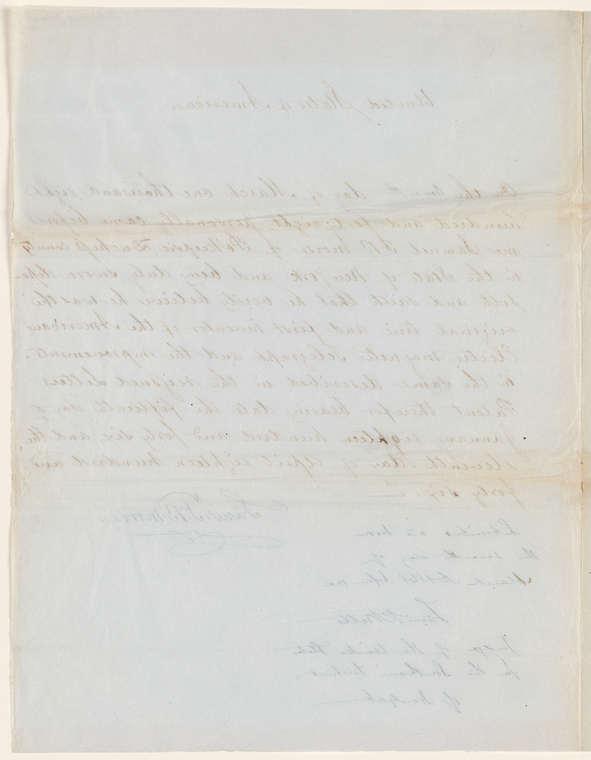 United States of America.
On the tenth day of March one thousand eight
hundred and forty eight personally came before
me Samuel F. B. Morse of Pokeepsie Duchess County
in the State of New York and being duly sworn depo-
seth and saith that he verily believes he was the
original true and first inventor of the American
Electro magnetic Telegraph and the improvement
in the same described in the reissued letters
Patent therefor bearing date the fifteenth day of
January eighteen hundred and forty six and the
eleventh day of April eighteen hundred and
forty six.
Saml. F. B. Morse
the day of
March before me
Judge of the United States
for the Southern District
of New York